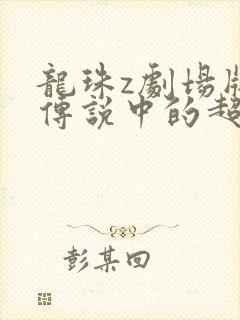 龍珠z劇場版
傳說中的超
彭某回